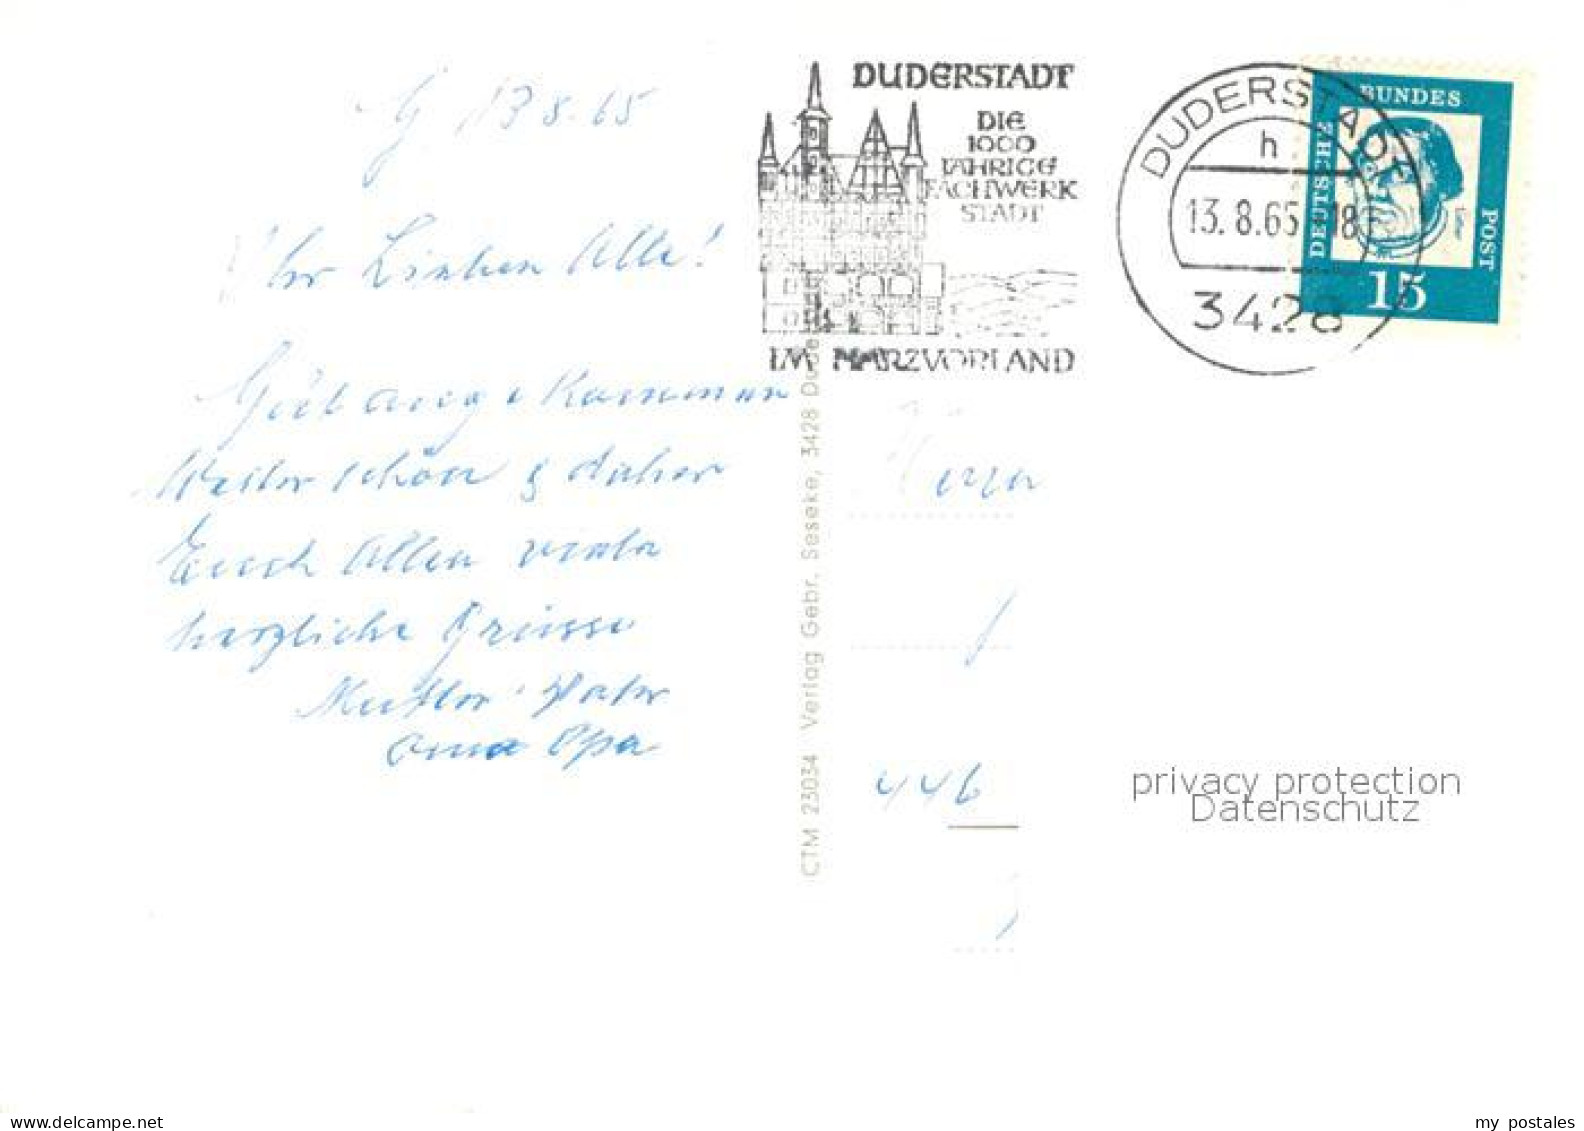 G 13 8. 65
Ihr Lieben Alle!
Gut angekommen
Wetter schön & daher
Euch Allen viele
herzliche Grüsse
Mutter Vater
Oma Opa
DUDERSTADT
DIE
1000
JÄHRIGE
FACHWERK
STADT
IM HARZVORLAND
DUDERSTADT
h
13. 8. 65 18
3428
DEUTSCHE BUNDES POST
15
CTM 23034 Verlag Gebr. Seseke, 3428 Dude
446
privacy protection
Datenschutz
www.delcampe.net
my_postales